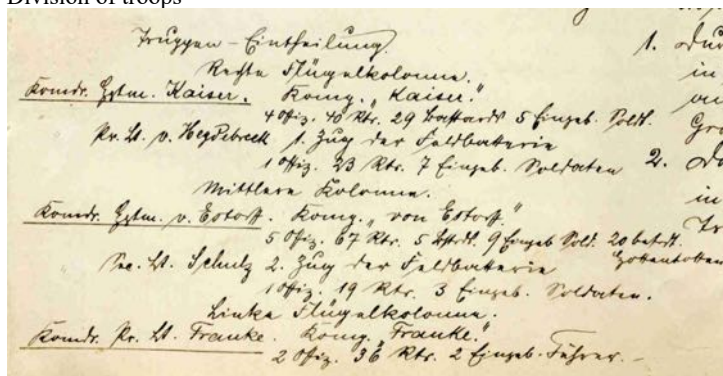 Division of troops
Truppen-Eintheilung.
Rechte Flügelkolonne.
Komdr. Hptm. Kaiser. Komp. „Kaiser."
4 Offiz. 40 Rtr. 29 Bastards 5 Eingeb. Soldt.
Pr. Lt. v. Heydebreck 1. Zug der Feldbatterie
1 Offiz. 23 Rtr. 7 Eingeb. Soldaten
Mittlere Kolonne.
Komdr. Hptm. v. Estorff. Komp. „von Estorff."
5 Offiz. 67 Rtr. 5 Bstrds. 9 Eingeb. Sold. 20 Hottentotten
Sec. Lt. Schulz 2. Zug der Feldbatterie
1 Offiz. 19 Rtr. 3 Eingeb. Soldaten.
Linke Flügelkolonne.
Komdr. Pr. Lt. Franke. Komp. „Franke."
2 Offiz. 36 Rtr. 2 Eingeb. Führer.-
1.
in
2.
in